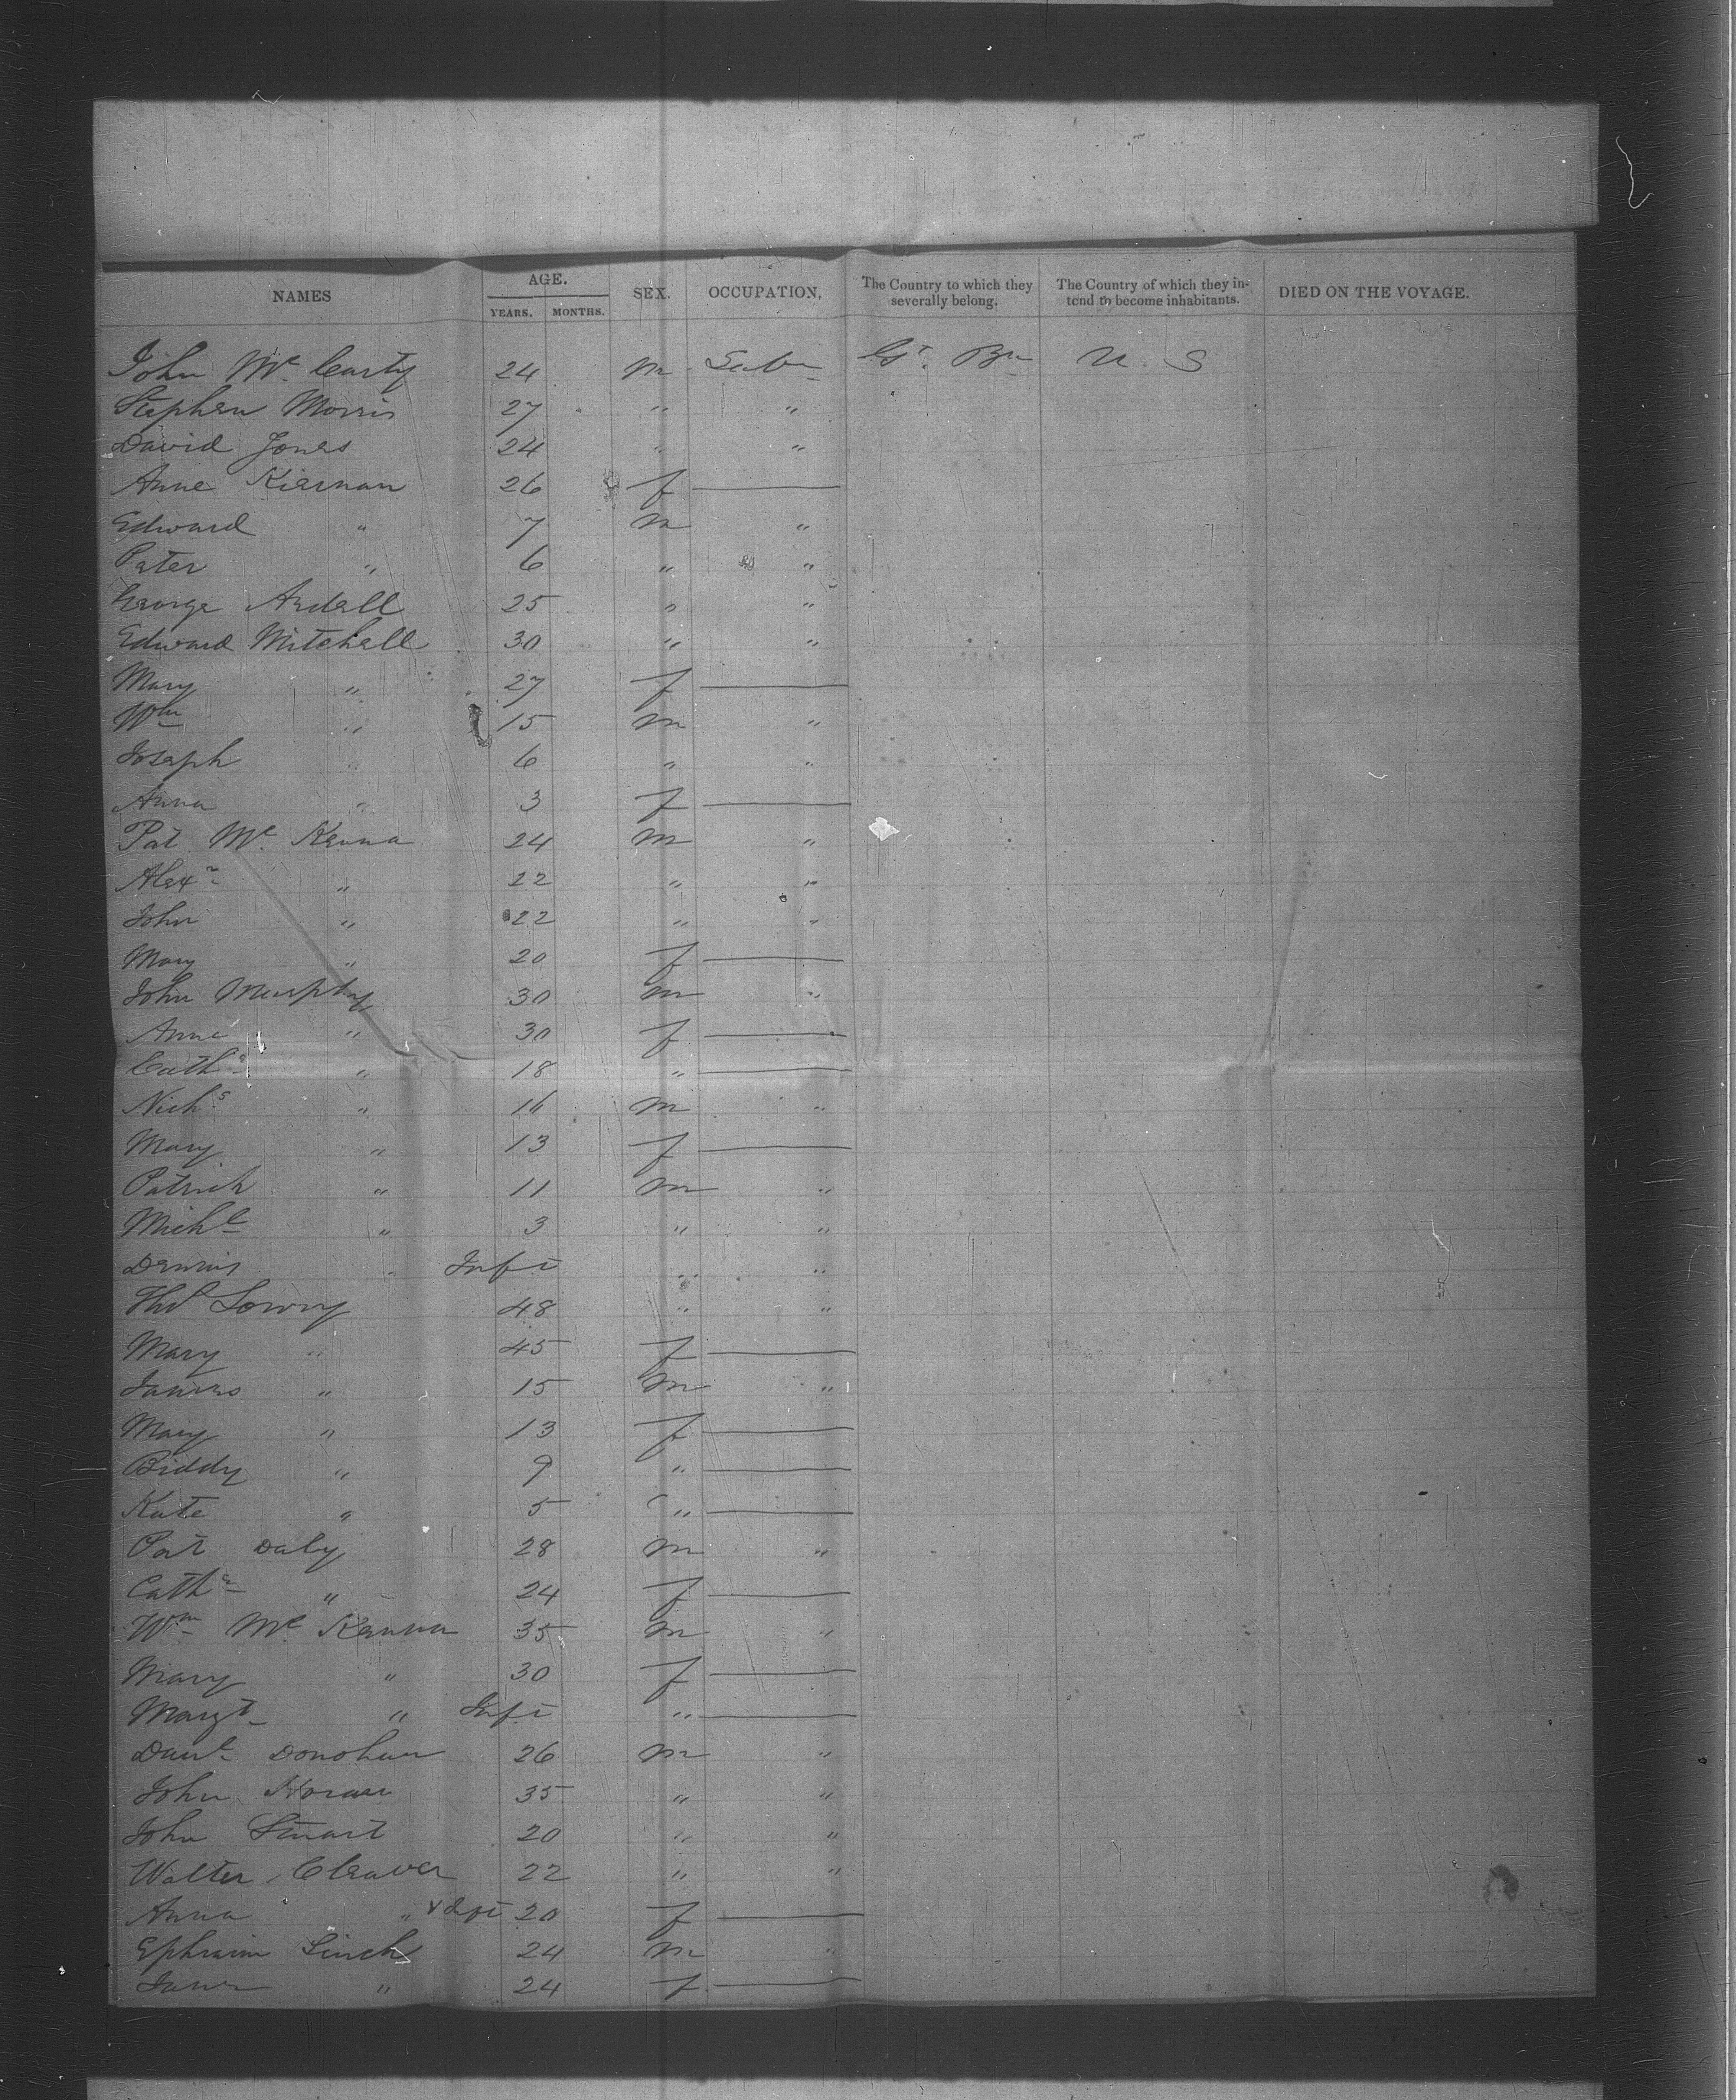 NAMES AGE. YEARS. MONTHS. SEX. OCCUPATION. The Country to which they severally belong. The Country of which they intend to become inhabitants. DIED ON THE VOYAGE.
John Mc Carty 24 m Labr Gt. Bn U. S
Stephen Morris 27 " "
David Jones 24 " "
Anne Kiernan 26 f —
Edward " 7 m "
Peter " 6 " "
George Ardell 25 " "
Edward Mitchell 30 " "
Mary " 27 f —
Wm " 15 m "
Joseph " 6 " "
Anna " 3 f —
Pat Mc Kenna 24 m "
Alexr " 22 " "
John " 22 " "
Mary " 20 f —
John Murphy 30 m "
Anne " 30 f —
Cathe " 18 " —
Nichs " 16 m "
Mary " 13 f —
Patrick " 11 m "
Michl " 3 " "
Dennis " Inft " "
Thos Lowry 48 " "
Mary " 45 f —
James " 15 m "
Mary " 13 f —
Biddy " 9 " —
Kate " 5 " —
Pat Daly 28 m "
Cathe " 24 f —
Wm Mc Kenna 35 m "
Mary " 30 f —
Margt " Inft " —
Danl Donohue 26 m "
John 35 " "
John Stuart 20 " "
Walter Cleaver 22 " "
Anna " & Inft 20 f —
Ephraim Linch 24 m "
Jane " 24 f —